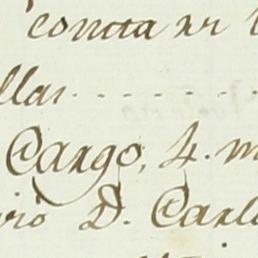 conita
llas
Cargo, 4. m
iro D. Carl